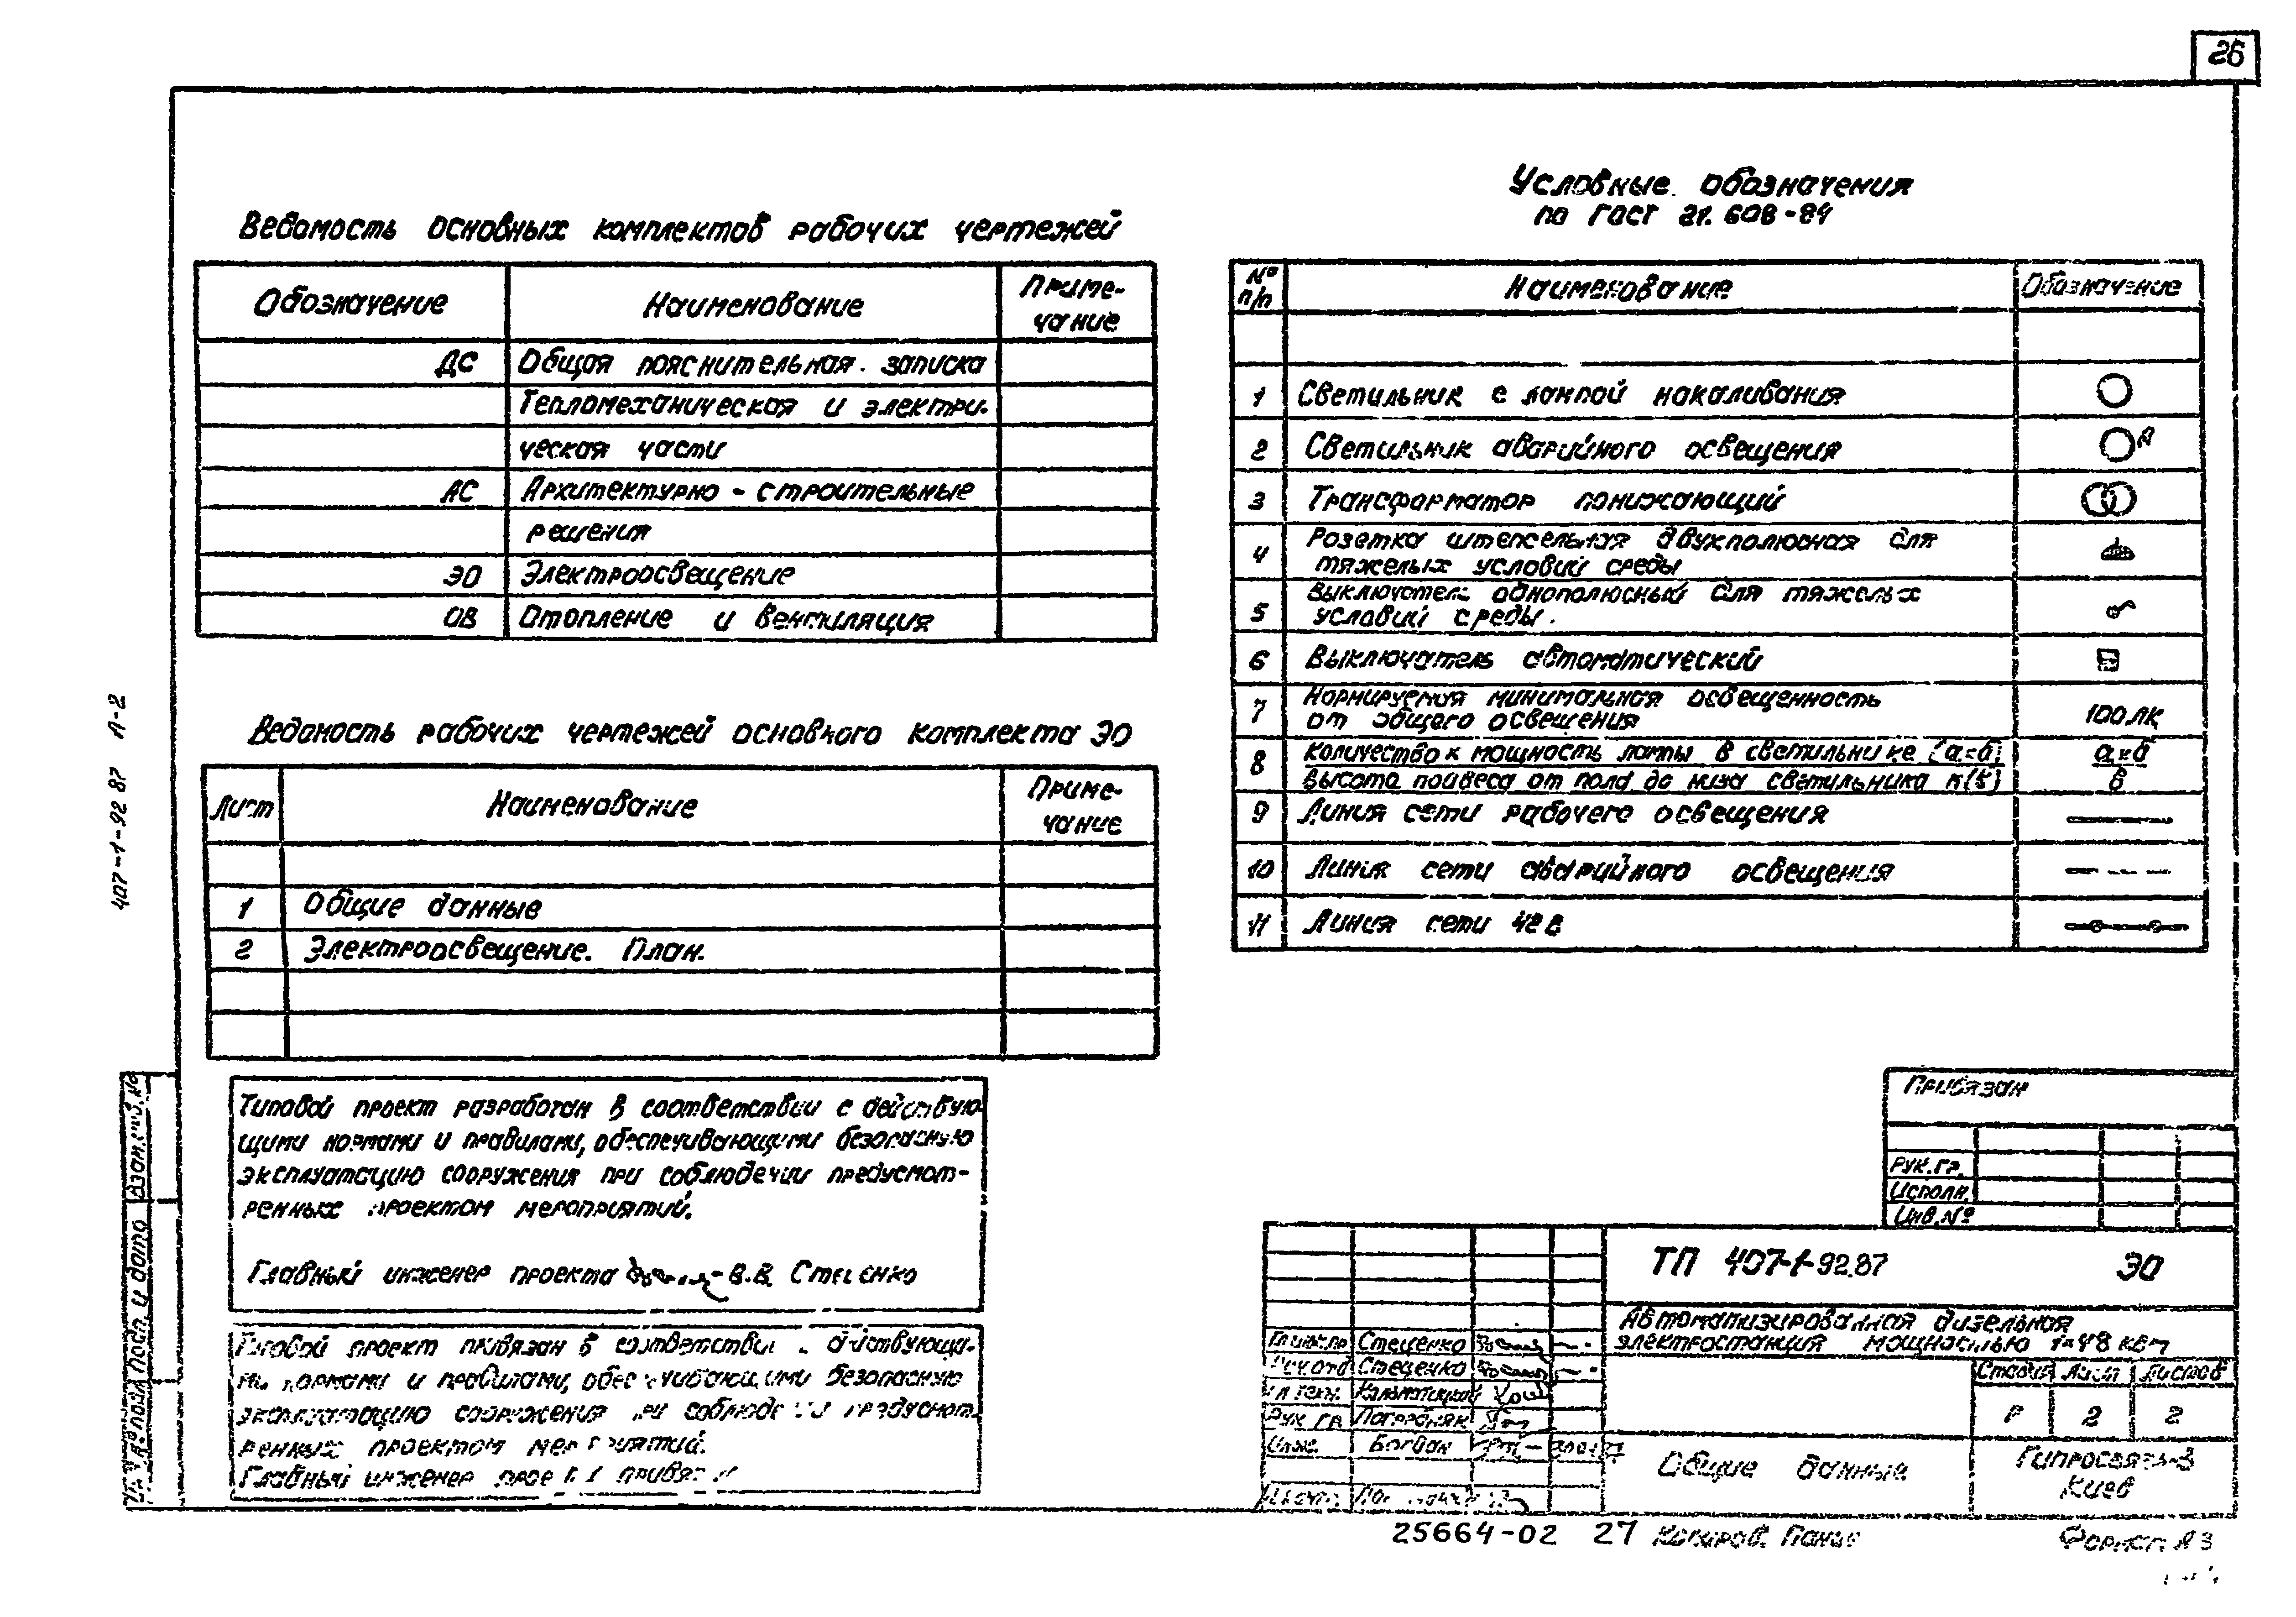 26
Ведомость основных комплектов рабочих чертежей
Обозначение Наименование Приме-
чание
ДС Общая пояснительная записка
Тепломеханическая и электри-
ческая части
АС Архитектурно - строительные
решения
ЭО Электроосвещение
ОВ Отопление и вентиляция
Ведомость рабочих чертежей основного комплекта ЭО
Лист Наименование Приме-
чание
1 Общие данные
2 Электроосвещение. План.
Типовой проект разработан в соответствии с действую-
щими нормами и правилами, обеспечивающими безопасную
эксплуатацию сооружения при соблюдении предусмот-
ренных проектом мероприятий.
Главный инженер проекта В.В. Стеценко
Типовой проект привязан в соответствии действующи-
ми нормами и правилами, обеспечивающими безопасную
эксплуатацию сооружения при соблюдении предусмот-
ренных проектом мероприятий.
Главный инженер
Условные обозначения
по ГОСТ 21.608-84
№
п/п Наименование Обозначение
1 Светильник с лампой накаливания
2 Светильник аварийного освещения А
3 Трансформатор понижающий
4 Розетка штепсельная двухполюсная для
тяжелых условий среды
5 Выключатель однополюсный для тяжелых
условий среды.
6 Выключатель автоматический
7 Нормируемая минимальная освещенность
от общего освещения 100 лк
8 Количество х мощность лампы в светильнике (а×б) а×б
высота подвеса от пола до низа светильника м(в) в
9 Линия сети рабочего освещения
10 Линия сети аварийного освещения
11 Линия сети 42 В
407-1-92 87 А-2
Взам.инв.№
Подп. и дата
Привязан
Рук.гр.
Исполн.
Инв.№
ТП 407-1-92.87 ЭО
Автоматизированная дизельная
электростанция мощностью 1×48 кВт
Стеценко
Нач.отд Стеценко
Рук. гр Погребняк
Инж. Богдан
Стадия Лист Листов
Р 2 2
Общие данные
Гипросвязь-3
Киев
25664-02 27 Копиров. Формат А3